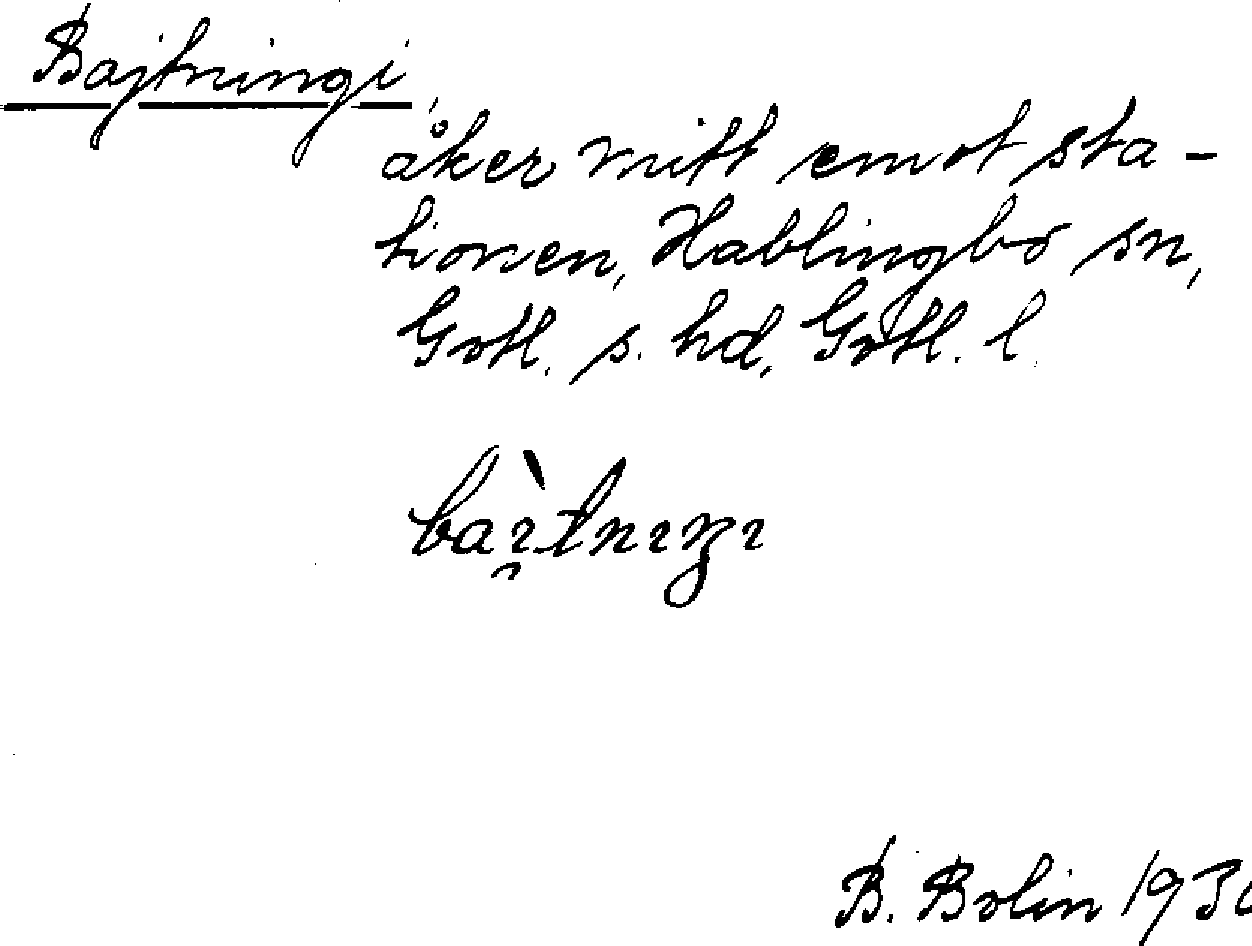 Bajtningi,
åker mitt emot sta-
tionen, Hablingbo sn,
Gotl. s. hd, Gotl. l.
B. Bolin 1930